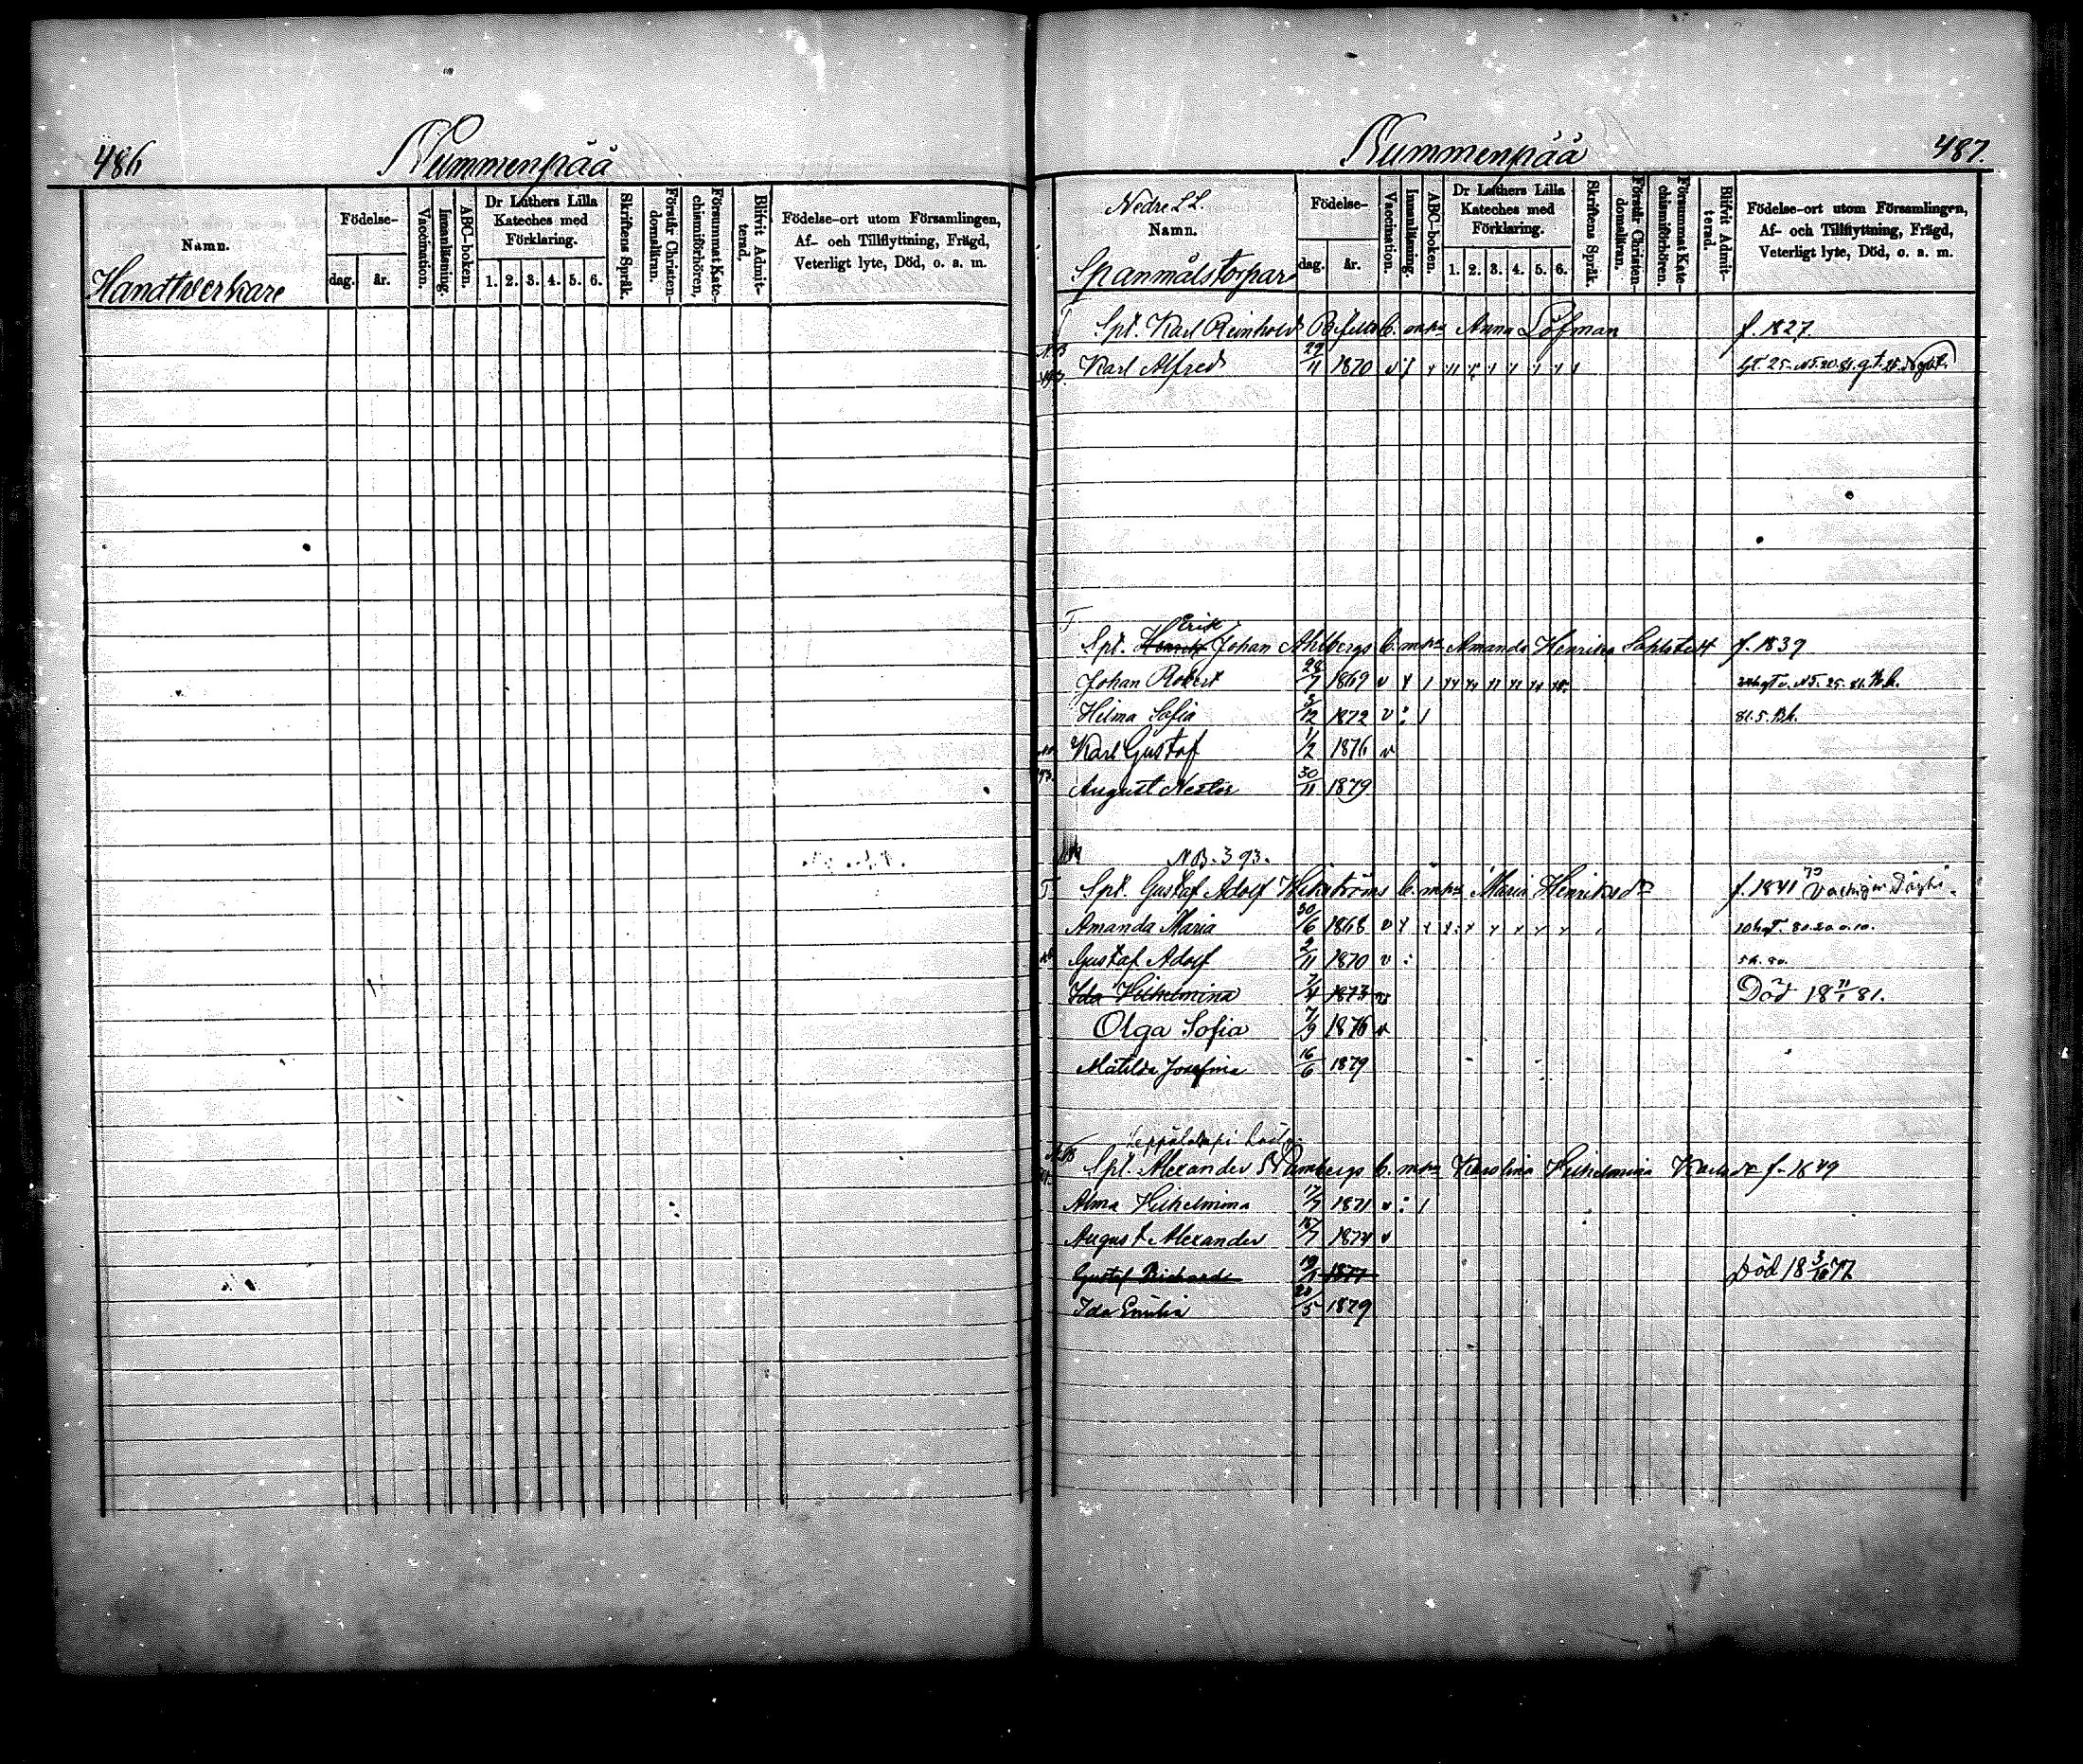 486 Nummenpää
Namn.
Handtverkare
Födelse-
dag. år.
Vaccination.
Innanläsning.
ABC-boken.
Dr Luthers Lilla
Kateches med
Förklaring.
1. 2. 3. 4. 5. 6.
Skriftens Språk.
Förstår Christen-
domsläran.
Försummat Kate-
chismiförhören,
Blifvit Admit-
terad,
Födelse-ort utom Församlingen,
Af- och Tillflyttning, Frägd,
Veterligt lyte, Död, o. s. m.
Nummenpää 487.
Nedre LL.
Namn.
Spanmålstorpare
Födelse-
dag. år.
Vaccination.
Innanläsning.
ABC-boken.
Dr Luthers Lilla
Kateches med
Förklaring.
1. 2. 3. 4. 5. 6.
Skriftens Språk.
Förstår Christen-
domsläran.
Försummat Kate-
chismiförhören.
Blifvit Admit-
terad.
Födelse-ort utom Församlingen,
Af- och Tillflyttning, Frägd,
Veterligt lyte, Död, o. s. m.
T Spt. Karl Reinhold b. m. Anna Löfman f. 1827.
Karl Alfred 29/11 1870 v
T Erik
Spt. Henrik Johan Ahlbergs b. m. Amanda Henrika Sahlstedt f. 1839
Johan Robert 28/7 1869 v
Hilma Sofia 3/12 1872 v 81.5.
Karl Gustaf 1/2 1876 v
August Nestor 30/11 1879
NB. 393.
T Spt. Gustaf Adolf Wikströms b. m. Maria Henriksdr f. 1841
Amanda Maria 30/6 1868 v
Gustaf Adolf 2/11 1870 v
Ida Wilhelmina 7/4 1873 v Död 18 /1 81.
Olga Sofia 7/9 1876 v
Matilda Josefina 16/6 1879
Spt. Alexander b. m. Karolina Wilhelmina Karlsdr f. 1849
Alma Wilhelmina 17/7 1871 v
August Alexander 18/7 1874 v
Gustaf Richard 1877 Död 18 3/10 77
Ida Emilia 20/5 1879